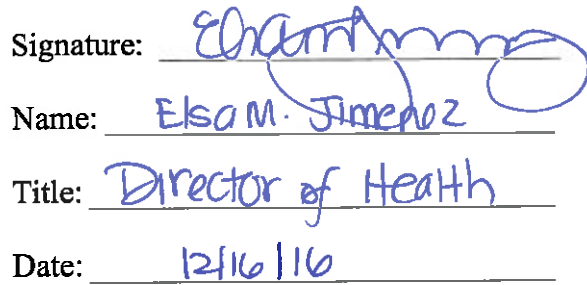 Signature:
Name: Elsa M. Jimenez
Title: Director of Health
Date: 12/16/16